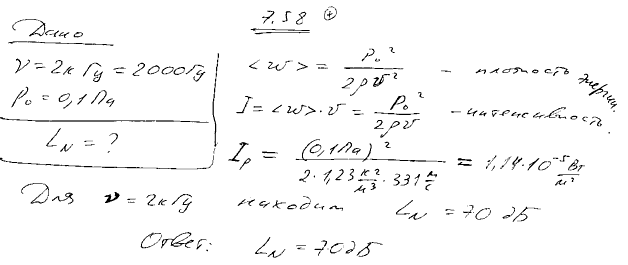 7.58 *
Дано
ν = 2кГц = 2000Гц
P₀ = 0,1Па
L_N = ?
<w> = P₀² / 2ρv² - плотность энергии.
I = <w>·v = P₀² / 2ρv - интенсивность.
I_p = (0,1Па)² / 2·1,23 кг/м³ · 331 м/с = 1,14·10⁻⁵ Вт/м²
Для ν = 2кГц находим L_N = 70 дБ
Ответ: L_N = 70 дБ